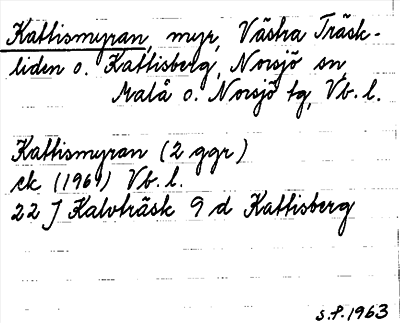 Kattismyran, myr, Västra Träsk-
liden o. Kattisberg, Norsjö sn,
Malå o. Norsjö tg, Vb. l.
Kattismyran (2 ggr)
ek (1961) Vb. l.
22 J Kalvträsk 9 d Kattisberg
S.P. 1963